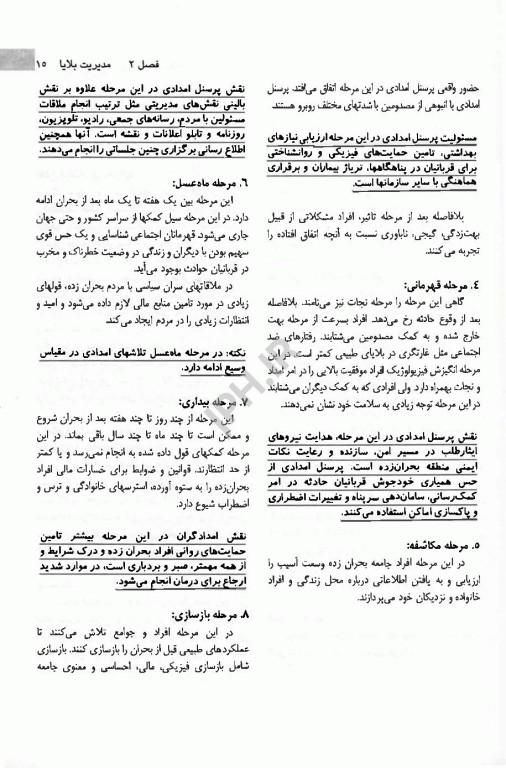 فصل ۲ مدیریت بلایا ۱۵
حضور واقعی پرسنل امدادی در این مرحله اتفاق می‌افتد. پرسنل
امدادی با انبوهی از مصدومین با شدتهای مختلف روبرو هستند.
مسئولیت پرسنل امدادی در این مرحله ارزیابی نیازهای
بهداشتی، تامین حمایت‌های فیزیکی و روانشناختی
برای قربانیان در پناهگاهها، تریاژ بیماران و برقراری
هماهنگی با سایر سازمانها است.
بلافاصله بعد از مرحله تاثیر، افراد مشکلاتی از قبیل
بهت‌زدگی، گیجی، ناباوری نسبت به آنچه اتفاق افتاده را
تجربه می‌کنند.
۴. مرحله قهرمانی:
گاهی این مرحله را مرحله نجات نیز می‌نامند. بلافاصله
بعد از وقوع حادثه رخ می‌دهد. افراد بسرعت از مرحله بهت
خارج شده و به کمک مصدومین می‌شتابند. رفتارهای ضد
اجتماعی مثل غارتگری در بلایای طبیعی کمتر است. در این
مرحله انگیزش فیزیولوژیک افراد موفقیت بالایی را در امر امداد
و نجات بهمراه دارد. ولی افرادی که به کمک دیگران می‌شتابند
در این مرحله توجه زیادی به سلامت خود نشان نمی‌دهند.
نقش پرسنل امدادی در این مرحله، هدایت نیروهای
ایثارطلب در مسیر امن، سازنده و رعایت نکات
ایمنی منطقه بحران‌زده است. پرسنل امدادی از
حس همیاری خودجوش قربانیان حادثه در امر
کمک‌رسانی، سامان‌دهی سرپناه و تغییرات اضطراری
و پاکسازی اماکن استفاده می‌کنند.
۵. مرحله مکاشفه:
در این مرحله افراد جامعه بحران زده وسعت آسیب را
ارزیابی و به یافتن اطلاعاتی درباره محل زندگی و افراد
خانواده و نزدیکان خود می‌پردازند.
نقش پرسنل امدادی در این مرحله علاوه بر نقش
بالینی نقش‌های مدیریتی مثل ترتیب انجام ملاقات
مسئولین با مردم، رسانه‌های جمعی، رادیو، تلویزیون،
روزنامه و تابلو اعلانات و نقشه است. آنها همچنین
اطلاع رسانی برگزاری چنین جلساتی را انجام می‌دهند.
۶. مرحله ماه‌عسل:
این مرحله بین یک هفته تا یک ماه بعد از بحران ادامه
دارد. در این مرحله سیل کمکها از سراسر کشور و حتی جهان
جاری می‌شود. قهرمانان اجتماعی شناسایی و یک حس قوی
سهیم بودن با دیگران و زندگی در وضعیت خطرناک و مخرب
در قربانیان حوادث بوجود می‌آید.
در ملاقاتهای سران سیاسی با مردم بحران زده، قولهای
زیادی در مورد تامین منابع مالی لازم داده می‌شود و امید و
انتظارات زیادی را در مردم ایجاد می‌کند.
نکته: در مرحله ماه‌عسل تلاشهای امدادی در مقیاس
وسیع ادامه دارد.
۷. مرحله بیداری:
این مرحله از چند روز تا چند هفته بعد از بحران شروع
و ممکن است تا چند ماه تا چند سال باقی بماند. در این
مرحله کمکهای قول داده شده به انجام نمی‌رسد و یا کمتر
از حد انتظارند. قوانین و ضوابط برای خسارات مالی افراد
بحران‌زده را به ستوه آورده، استرسهای خانوادگی و ترس و
اضطراب شیوع دارد.
نقش امدادگران در این مرحله بیشتر تامین
حمایت‌های روانی افراد بحران زده و درک شرایط و
از همه مهمتر، صبر و بردباری است، در موارد شدید
ارجاع برای درمان انجام می‌شود.
۸. مرحله بازسازی:
در این مرحله افراد و جوامع تلاش می‌کنند تا
عملکردهای طبیعی قبل از بحران را بازسازی کنند. بازسازی
شامل بازسازی فیزیکی، مالی، احساسی و معنوی جامعه